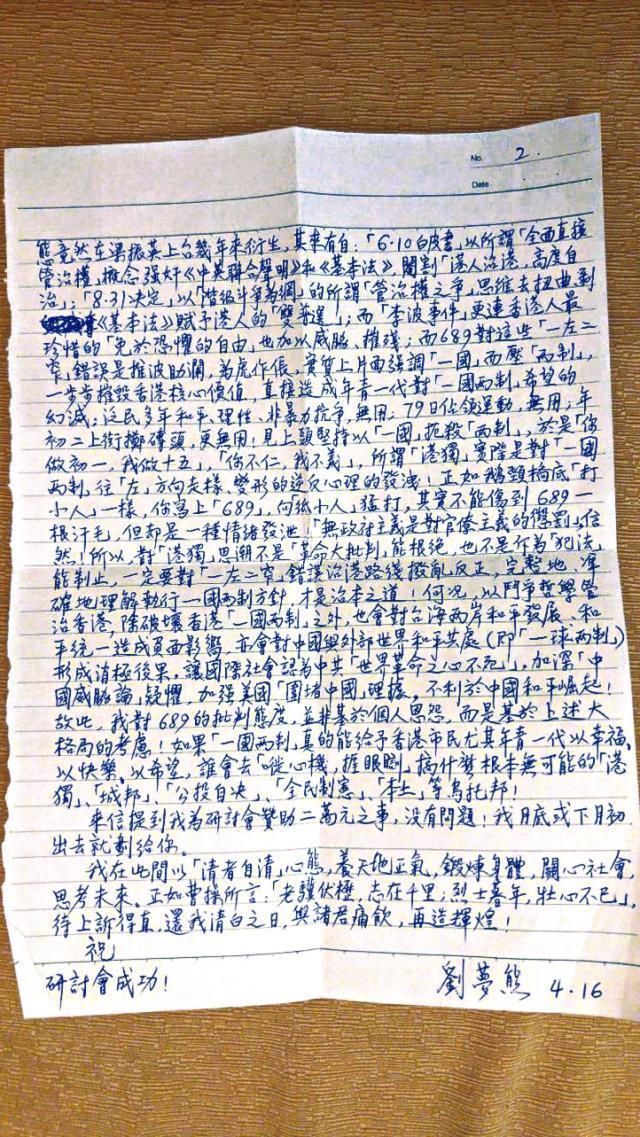 No. 2.
Date
態竟然在梁振英上台幾年來衍生,其來有自:「6·10白皮書」以所謂「全面直接
管治權」概念強奸《中英聯合聲明》和《基本法》,閹割「港人治港,高度自
治」;「8.31決定」,以「階級斗爭為綱」的所謂「管治權之爭」思維去扭曲剝
《基本法》賦予港人的「雙普選」!;而「李波事件」更連香港人最
珍惜的「免於恐懼的自由」也加以威脅、摧殘;而689對這些「一左二
窄」錯誤是推波助瀾,為虎作倀,實質上片面強調「一國」而壓「兩制」,
一步步摧毀香港核心價值,直接造成年青一代對「一國兩制」希望的
幻滅;泛民多年和平、理性、非暴力抗爭,無用;79日佔領運動,無用;年
初二上街擲磚頭,更無用!見上頭堅持以「一國」扼殺「兩制」,於是「你
做初一,我做十五」,「你不仁,我不義」,所謂「港獨」實際是對「一國
兩制」往「左」方向走樣、變形的逆反心理的發洩!正如鵝頸橋底「打
小人」一樣,你寫上「689」,向紙小人猛打,其實不能傷到689一
根汗毛,但却是一種情緒發泄!「無政府主義是對官僚主義的懲罰」,信
然!所以,對「港獨」思潮不是「革命大批判」能根絕,也不是作為「犯法」
能制止,一定要對「一左二窄」錯誤治港路綫撥亂反正,完整地、準
確地理解執行一國兩制方針,才是治本之道!何況,以鬥爭哲學管
治香港,除破壞香港「一國兩制」之外,也會對台海兩岸和平發展、和
平統一造成負面影響,亦會對中國與外部世界和平共處(即「一球兩制」)
形成消極後果,讓國際社會認為中共「世界革命之心不死」,加深「中
國威脅論」疑懼,加強美國「圍堵中國」理據,不利於中國和平崛起!
故此,我對689的批判態度,並非基於個人恩怨,而是基於上述大
格局的考慮!如果「一國兩制」真的能給予香港市民尤其年青一代以幸福、
以快樂、以希望,誰會去「嘥心機,捱眼瞓」搞什麼根本無可能的「港
獨」、「城邦」、「公投自決」、「全民制憲」、「本土」等烏托邦!
來信提到我為研討會贊助二萬元之事,沒有問題!我月底或下月初
出去就劃給你。
我在此間以「清者自清」心態,養天地正氣,鍛煉身體,關心社會,
思考未來。正如曹操所言:「老驥伏櫪,志在千里;烈士暮年,壯心不已」,
待上訴得直,還我清白之日,與諸君痛飲,再造輝煌!
祝
研討會成功!
劉夢熊 4.16